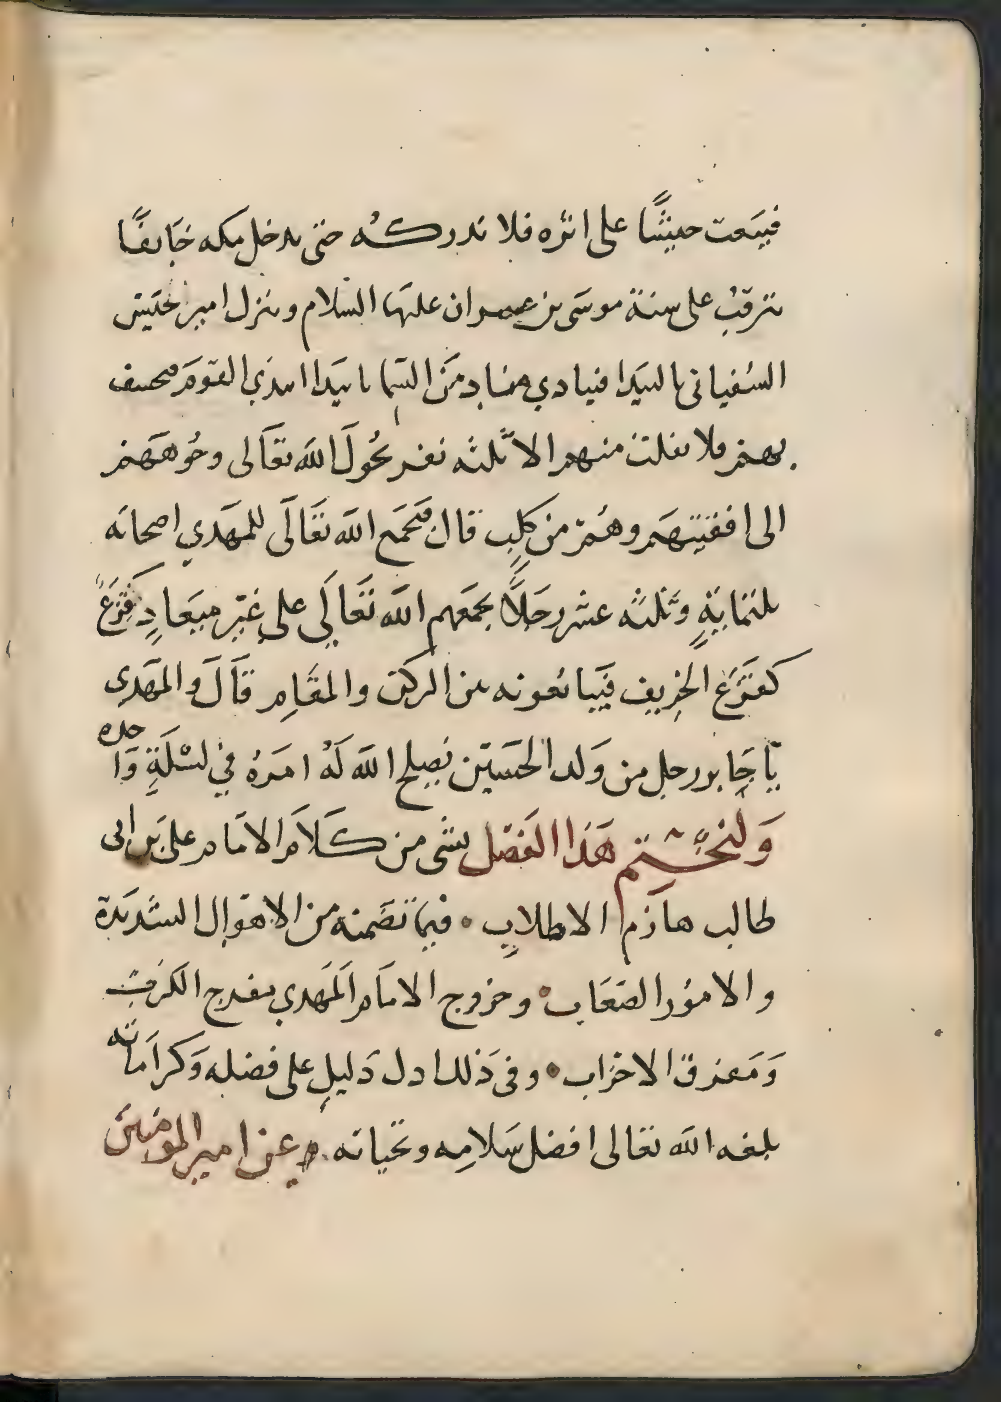 فيبعث جيشًا على اثره فلا تدركه حتى يدخل مكه خايفًا
يترقب على سنة موسى بن عمران عليهما السلام وينزل امير جيش
السفياني بالبيدا فينادي مناد من السما يا بيدا ابيدي القوم فيخسف
بهم فلا يفلت منهم الا ثلثه نفر يحول الله تعالى وجوههم
الى اقفيتهم وهم من كلب قال فيجمع الله تعالى للمهدي اصحابه
ثلثماية وثلثه عشر رجلًا يجمعهم الله تعالى على غير ميعاد قزع
كقزع الخريف فيبايعونه بين الركن والمقام قال والمهدي
يا جابر رجل من ولد الحسين يصلح الله له امره في ليلة واحده
ولنختم هذا الفصل بشى من كلام الامام على بن ابى
طالب هازم الاطلاب فيما تضمنه من الاهوال الشديدة
والامور الصعاب وخروج الامام المهدي مفرج الكرب
ومفرق الاحزاب وفي ذلك ادل دليل على فضله وكراماته
بلغه الله تعالى افضل سلامه وتحياته وعن امير المومنين